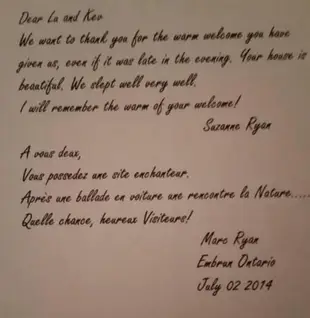 Dear Lu and Kev
We want to thank you for the warm welcome you have
given us, even if it was late in the evening. Your house is
beautiful. We slept well very well.
I will remember the warm of your welcome!
Suzanne Ryan
A vous deux,
Vous possedez une site enchanteur.
Après une ballade en voiture une rencontre la Nature.....
Quelle chance, heureux Visiteurs!
Marc Ryan
Embrun Ontario
July 02 2014